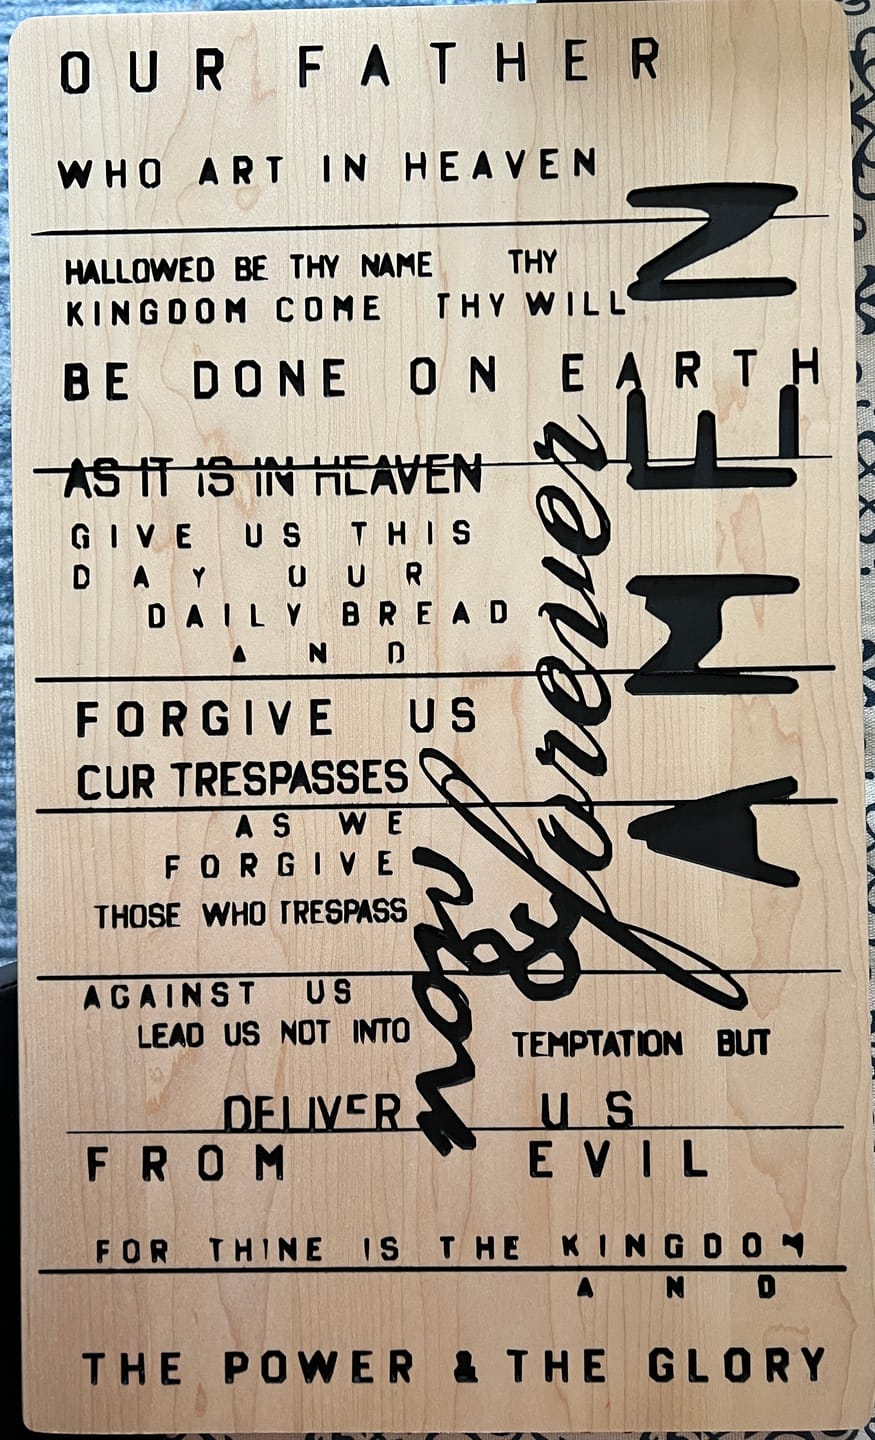 OUR FATHER
WHO ART IN HEAVEN
HALLOWED BE THY NAME THY
KINGDOM COME THY WILL
BE DONE ON EARTH
AS IT IS IN HEAVEN
GIVE US THIS
DAY OUR
DAILY BREAD
AND
FORGIVE US
CUR TRESPASSES
AS WE
FORGIVE
THOSE WHO TRESPASS
AGAINST US
LEAD US NOT INTO TEMPTATION BUT
DELIVER US
FROM EVIL
FOR THINE IS THE KINGDOM
AND
THE POWER & THE GLORY
now & forever
AMEN